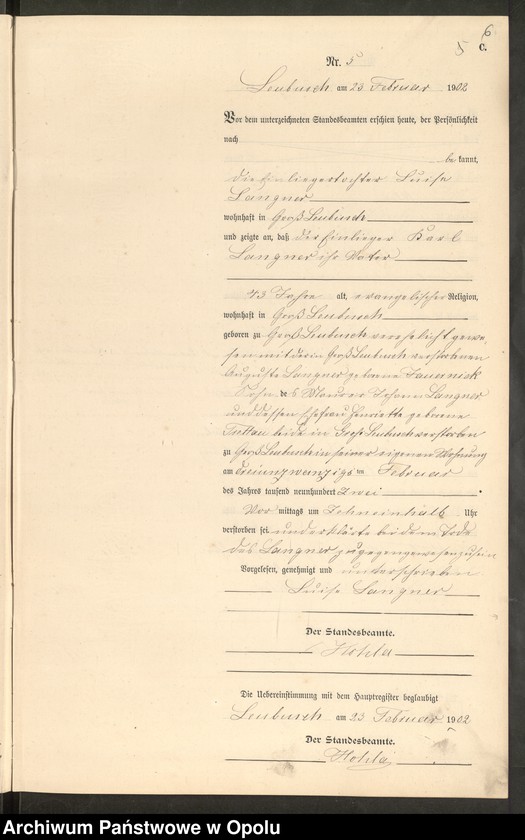 6
5 C.
Nr. 5
Leubusch am 23 Februar 1902
Vor dem unterzeichneten Standesbeamten erschien heute, der Persönlichkeit
nach
be kannt,
die Einliegertochter Luise
Langner
wohnhaft in Groß Leubusch
und zeigte an, daß der Einlieger Karl
Langner ihr Vater
43 Jahre alt, evangelischer Religion,
wohnhaft in Groß Leubusch
geboren zu Groß Leubusch verehelicht gewe-
sen mit der in Groß Leubusch verstorbenen
Auguste Langner geborene Jauernick
Sohn des Maurer Johann Langner
und dessen Ehefrau Henriette geborene
beide in Groß Leubusch verstorben
zu Groß Leubusch in seiner eigenen Wohnung
am dreiundzwanzigsten Februar
des Jahres tausend neunhundert zwei
Vor mittags um Uhr
verstorben sei und erklärte bei dem Tode
des Langner zugegen gewesen zu sein
Vorgelesen, genehmigt und unterschrieben
Luise Langner
Der Standesbeamte.
Hohla
Die Uebereinstimmung mit dem Hauptregister beglaubigt
Leubusch am 23 Februar 1902
Der Standesbeamte.
Hohla
Archiwum Państwowe w Opolu